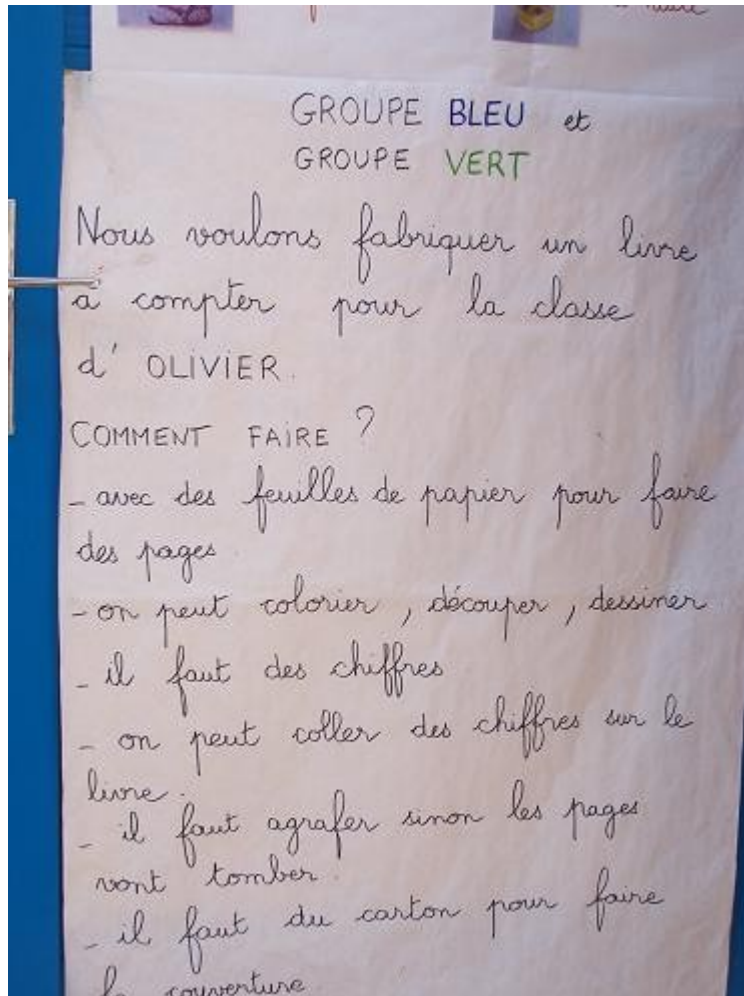 GROUPE BLEU et
GROUPE VERT
Nous voulons fabriquer un livre
à compter pour la classe
d' OLIVIER.
COMMENT FAIRE ?
- avec des feuilles de papier pour faire
des pages.
- on peut colorier, découper, dessiner
- il faut des chiffres
- on peut coller des chiffres sur le
livre.
- il faut agrafer sinon les pages
vont tomber.
- il faut du carton pour faire
la couverture